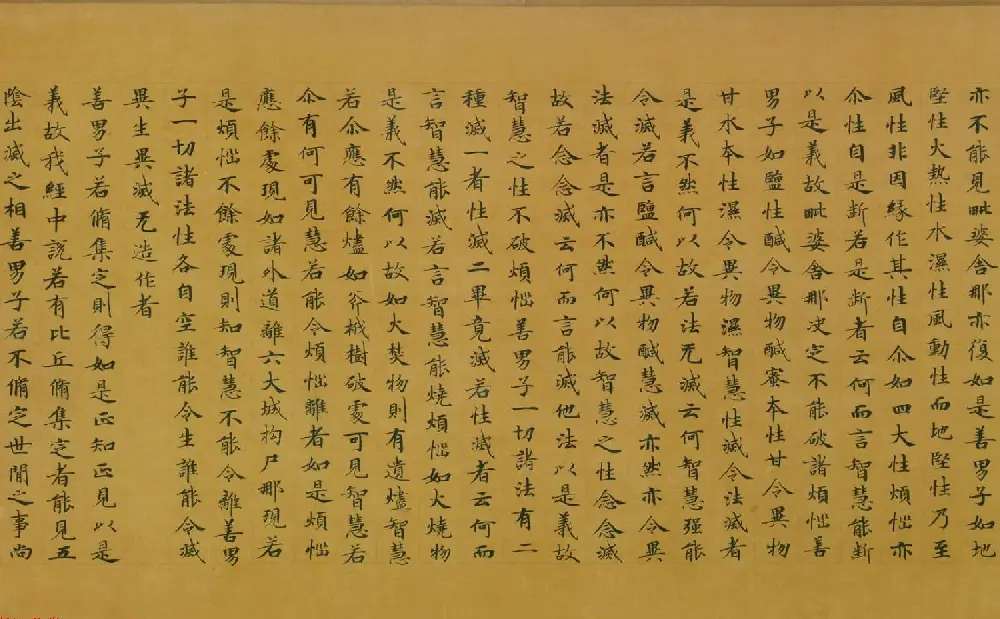 亦不能見毗婆舍那亦復如是善男子如地
堅性火熱性水濕性風動性而地堅性乃至
風性非因緣作其性自尒如四大性煩惱亦
尒性自是断若是断者云何而言智慧能断
以是義故毗婆舍那决定不能破諸煩惱善
男子如鹽性醎令異物醎蜜本性甘令異物
甘水本性濕令異物濕智慧性滅令法滅者
是義不然何以故若法无滅云何智慧强能
令滅若言鹽醎令異物醎慧滅亦然亦令異
法滅者是亦不然何以故智慧之性念念滅
故若念念滅云何而言能滅他法以是義故
智慧之性不破煩惱善男子一切諸法有二
種滅一者性滅二畢竟滅若性滅者云何而
言智慧能滅若言智慧能燒煩惱如火燒物
是義不然何以故如火焚物則有遺燼智慧
若尒應有餘燼如斧柢樹破處可見智慧若
尒有何可見慧若能令煩惱離者如是煩惱
應餘處現如諸外道離六大城拘尸那現若
是煩惱不餘處現則知智慧不能令離善男
子一切諸法性各自空誰能令生誰能令滅
異生異滅无造作者
善男子若脩集定則得如是正知正見以是
義故我經中說若有比丘脩集定者能見五
陰出滅之相善男子若不脩定世間之事尚